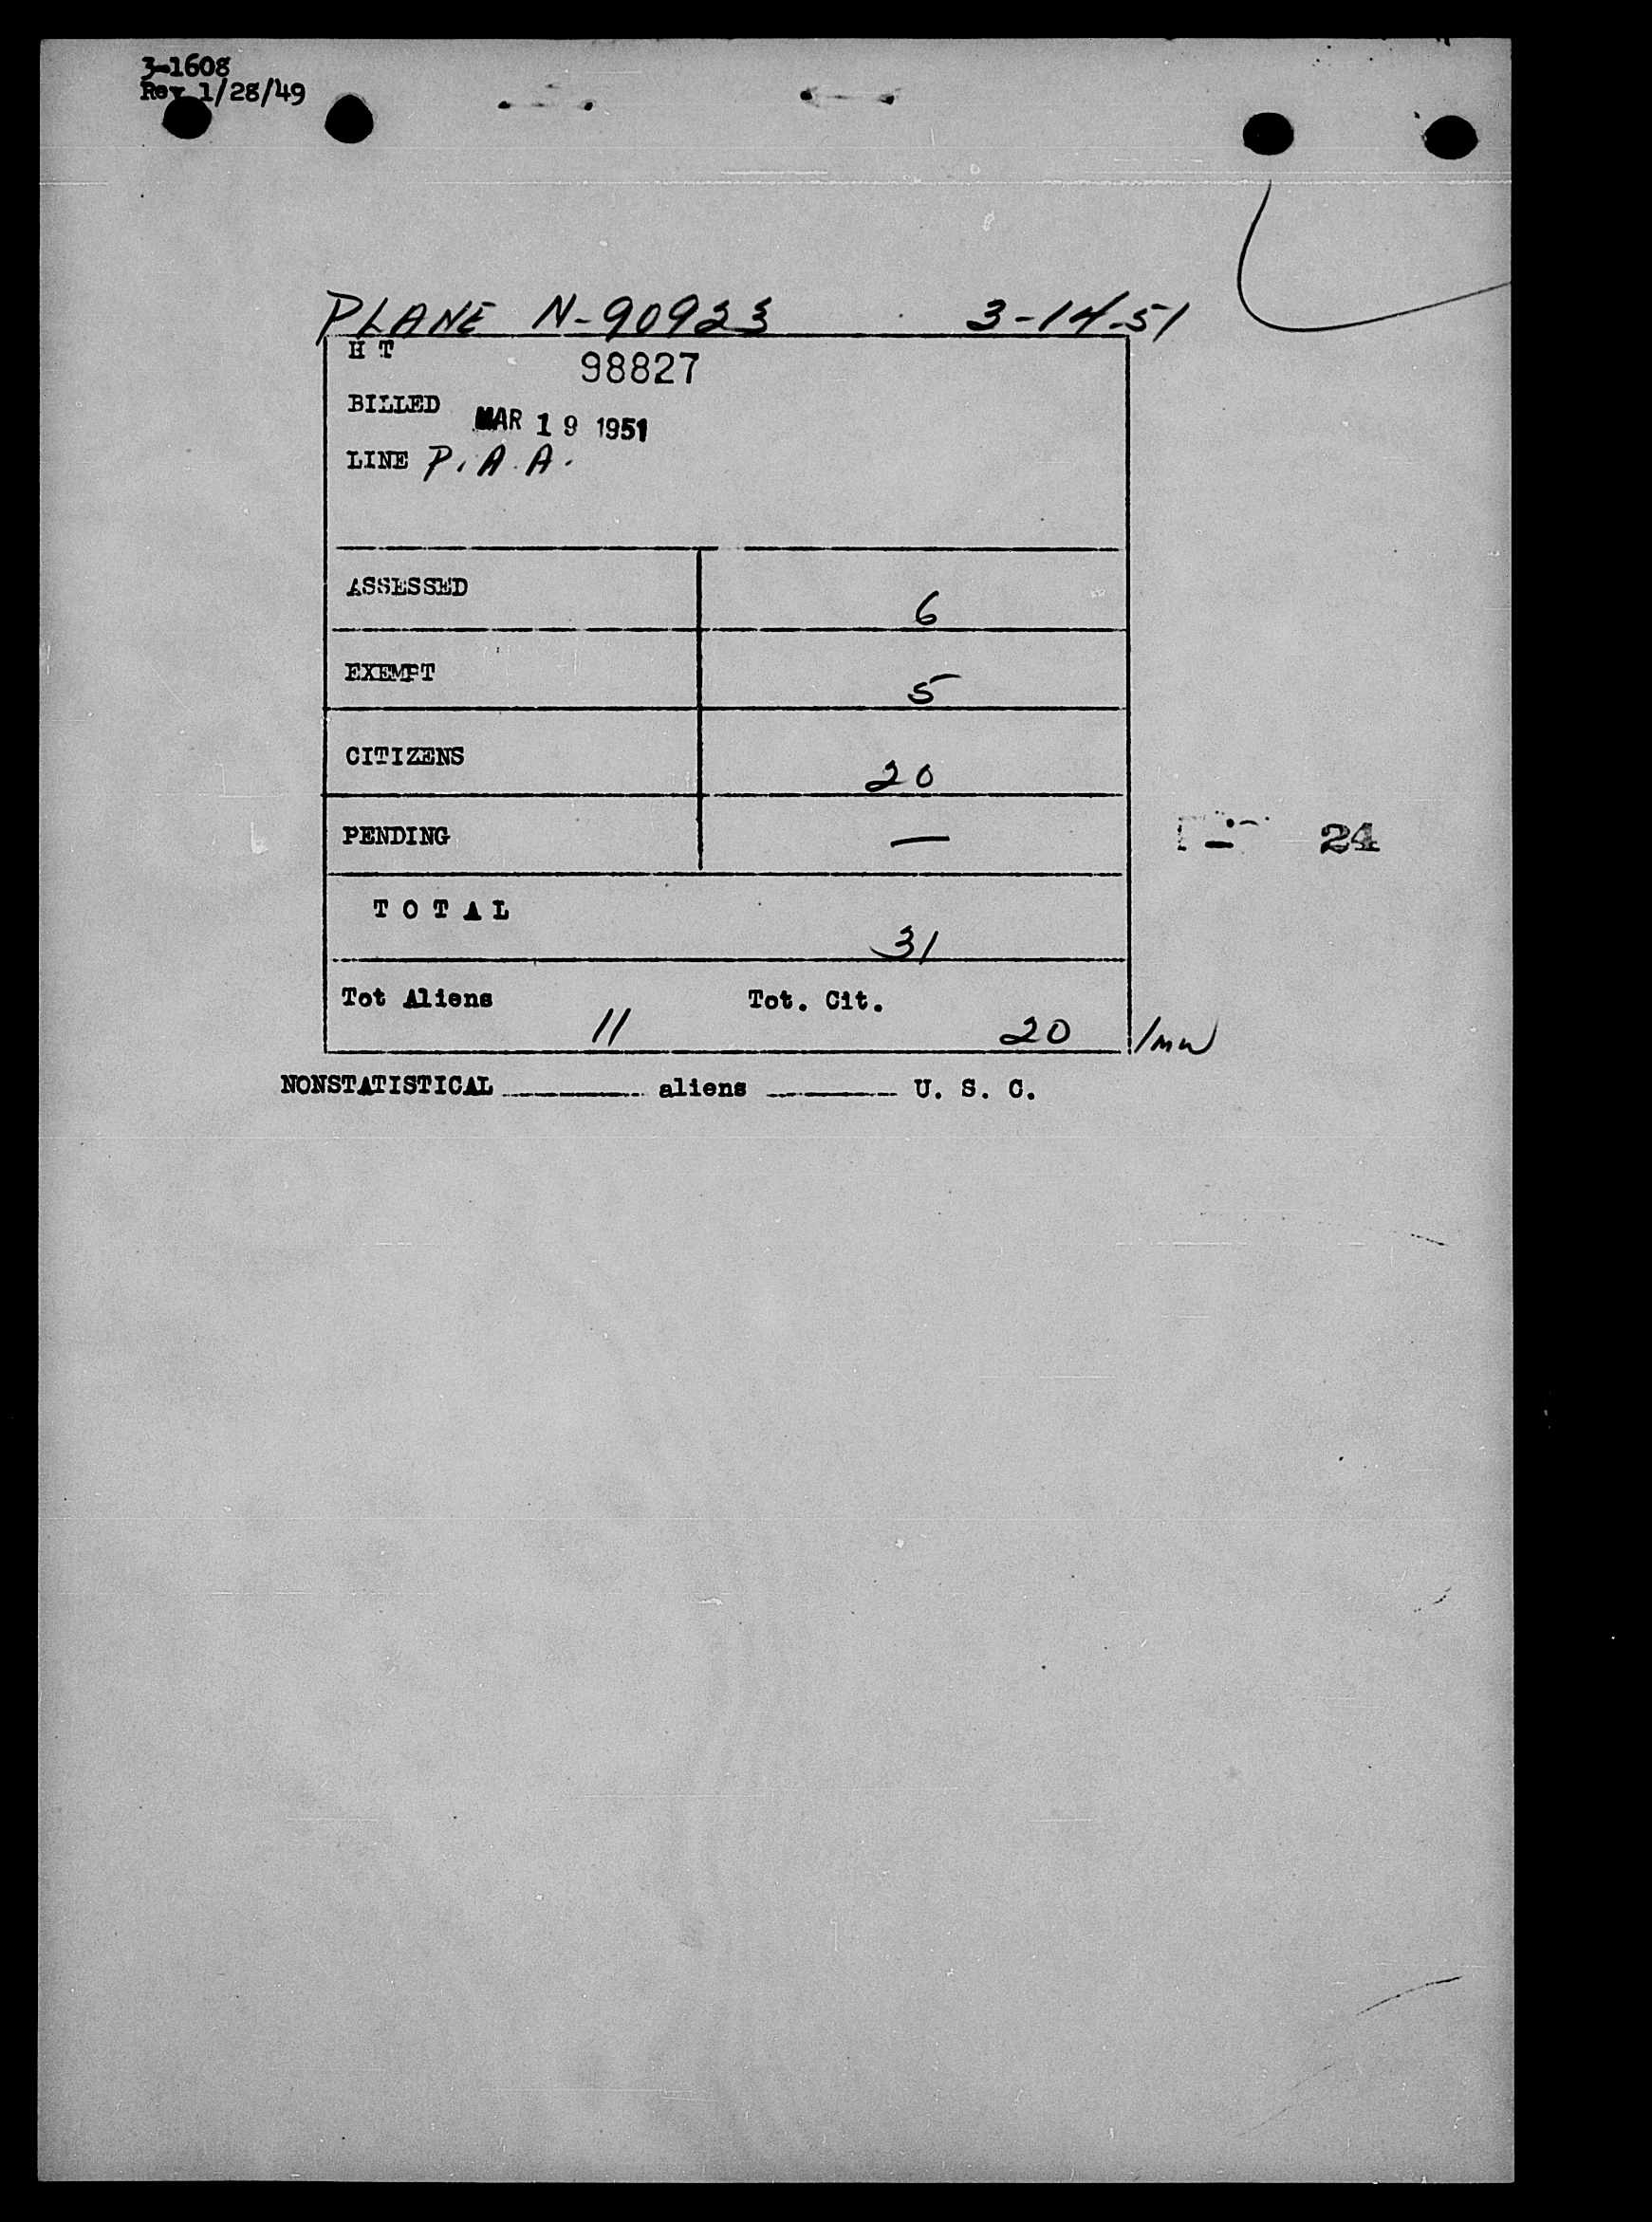 3-1608
Rev 1/28/49
PLANE N-90923 3-14-51
H T 98827
BILLED MAR 19 1951
LINE P.A.A.
ASSESSED 6
EXEMPT 5
CITIZENS 20
PENDING —
24
TOTAL 31
Tot Aliens 11 Tot. Cit. 20 /mw
NONSTATISTICAL ______ aliens ______ U. S. C.